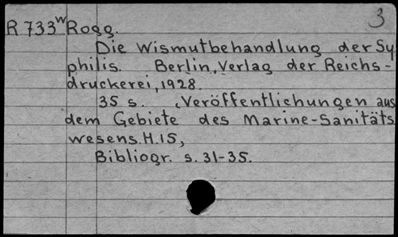 3
R 733ʷ Rogg.
Die Wismutbehandlung der Sy
philis. Berlin, Verlag der Reichs-
druckerei, 1928.
35 s. (Veröffentlichungen aus
dem Gebiete des Marine-Sanitäts
wesens. H. 15,
Bibliogr. s. 31-35.